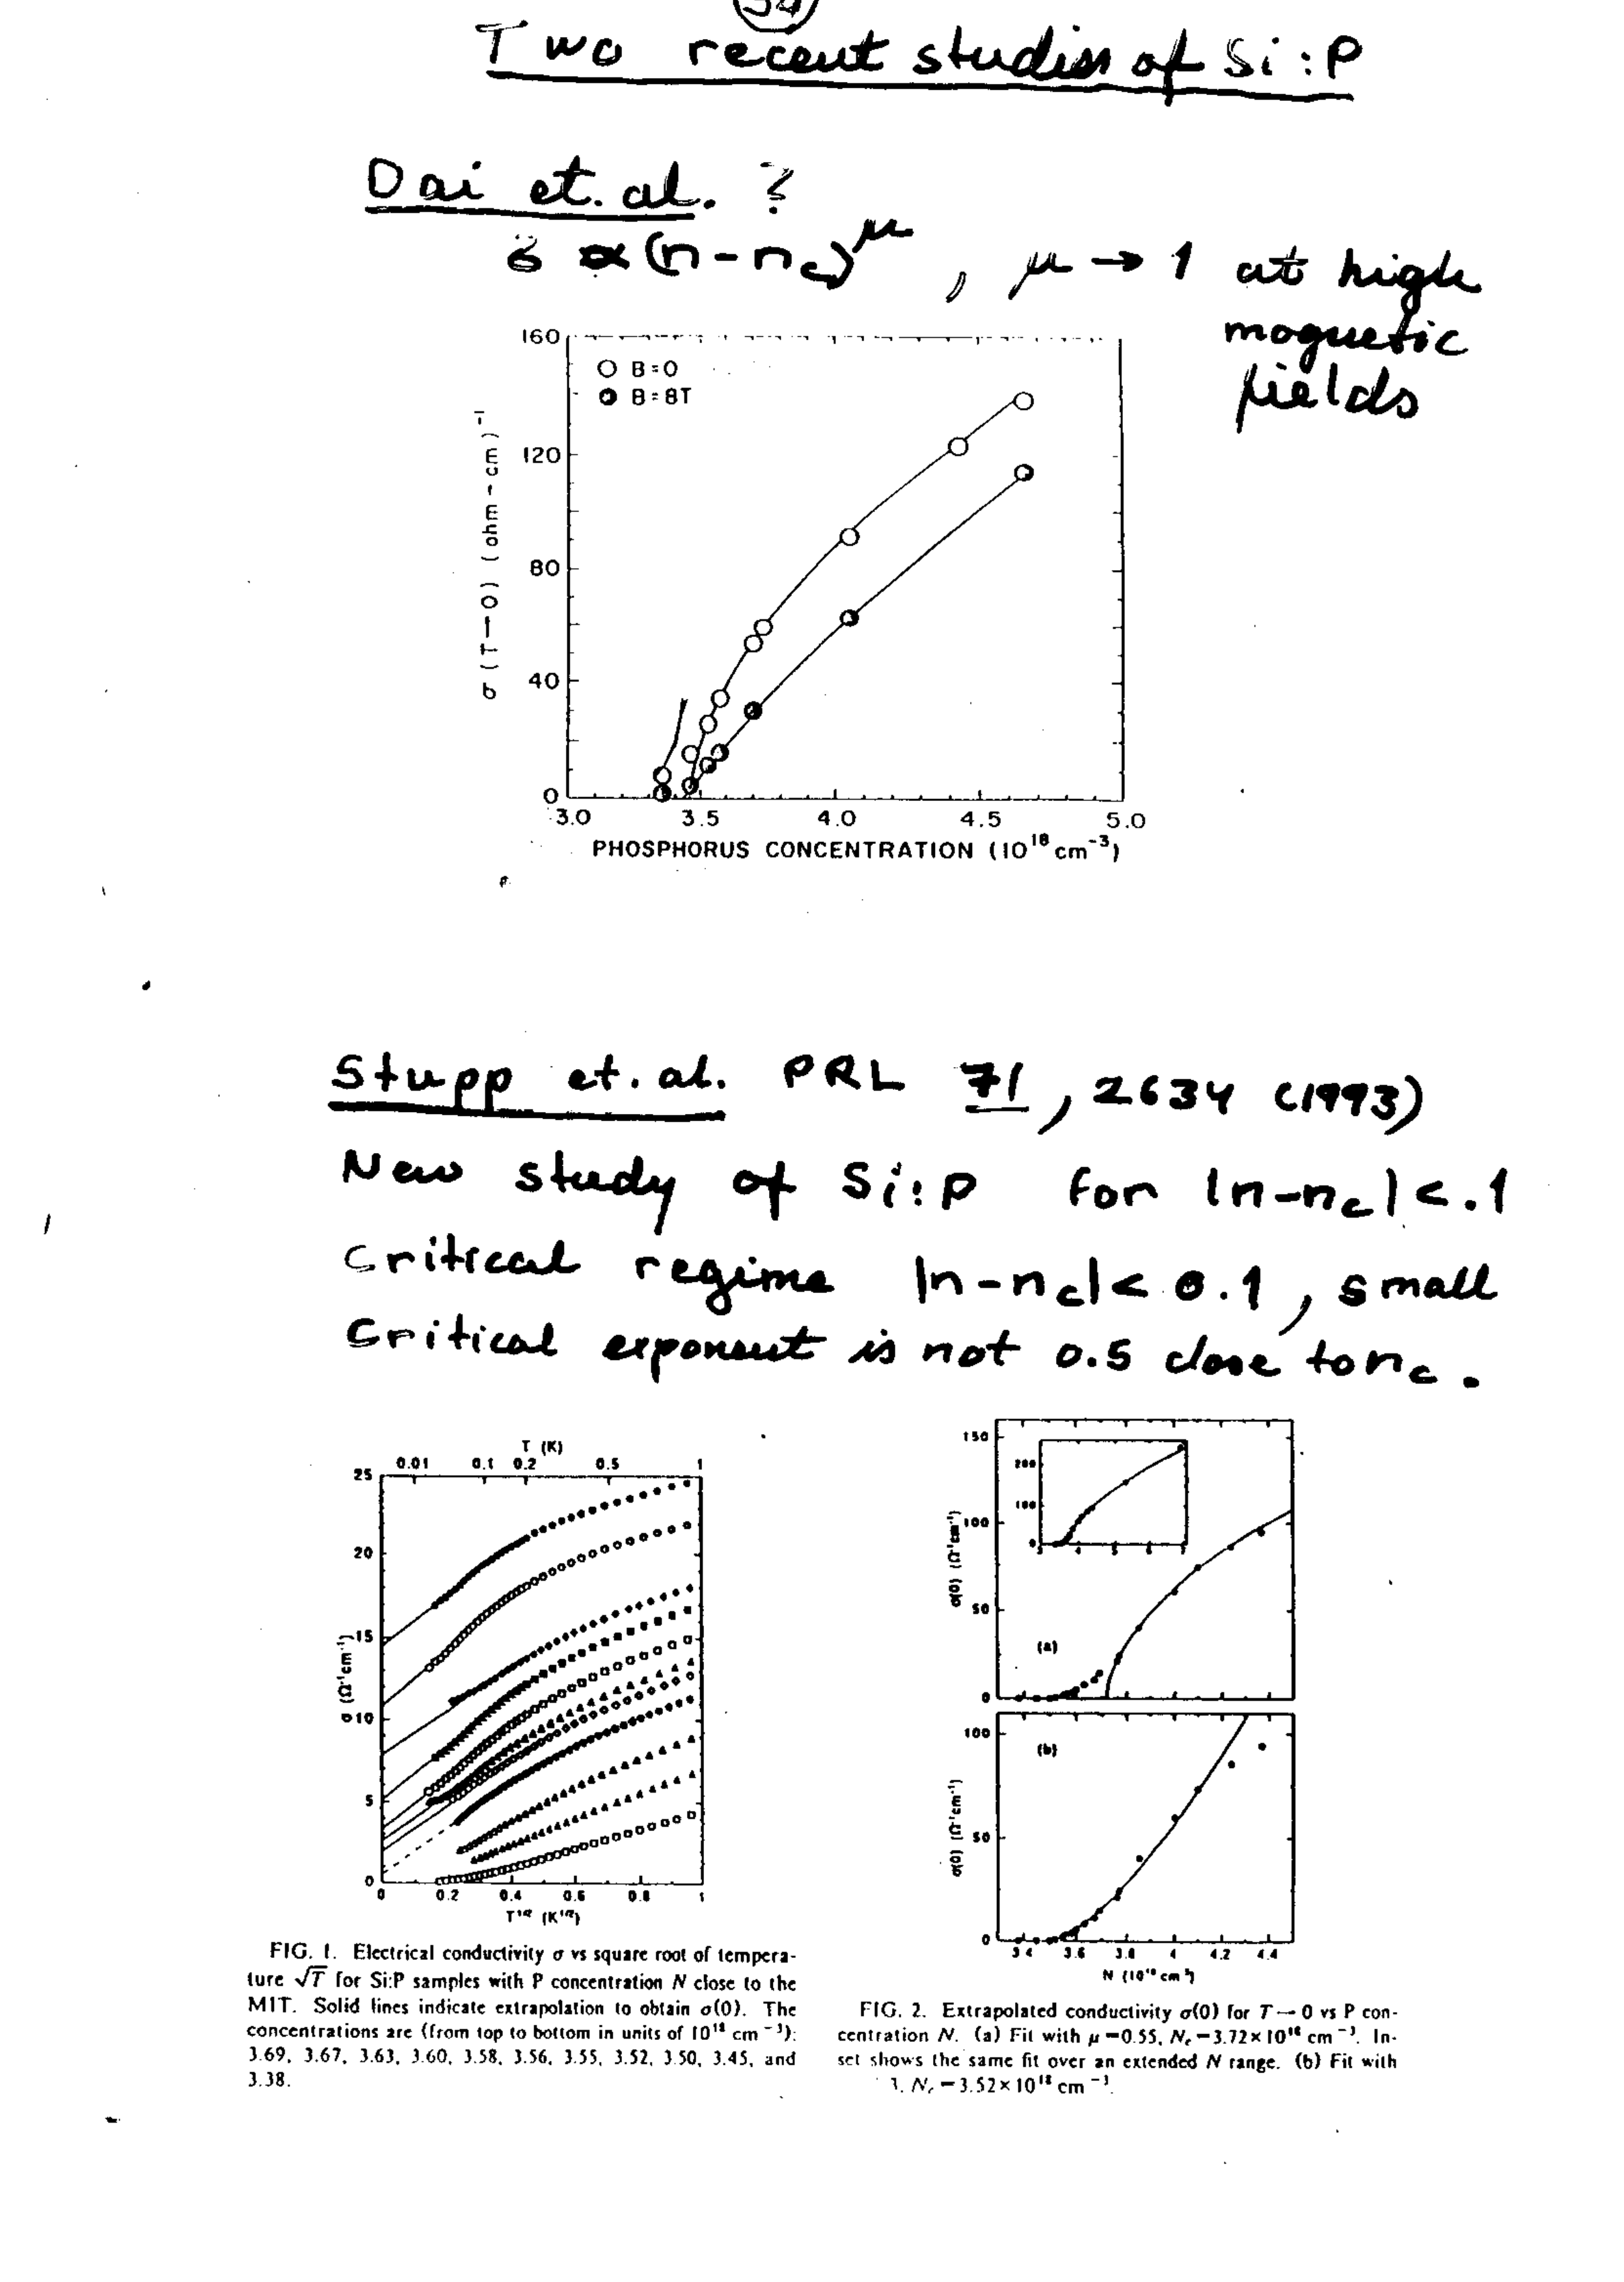 34
Two recent studies of Si:P
Dai et. al. ?
σ ∝ (n-nc)^μ , μ → 1 at high
magnetic
fields
160
120
80
40
0
○ B=0
B=8T
σ (T→0) (ohm-cm)⁻¹
3.0 3.5 4.0 4.5 5.0
PHOSPHORUS CONCENTRATION (10¹⁸ cm⁻³)
Stupp et. al. PRL 71, 2634 (1993)
New study of Si:P for |n-nc| < .1
Critical regime |n-nc| < 0.1, small
Critical exponent is not 0.5 close to nc.
T (K)
0.01 0.1 0.2 0.5 1
25
20
15
10
5
0
σ (Ω⁻¹cm⁻¹)
0 0.2 0.4 0.6 0.8 1
T^1/2 (K^1/2)
FIG. 1. Electrical conductivity σ vs square root of tempera-
ture √T for Si:P samples with P concentration N close to the
MIT. Solid lines indicate extrapolation to obtain σ(0). The
concentrations are (from top to bottom in units of 10¹⁸ cm⁻³):
3.69, 3.67, 3.63, 3.60, 3.58, 3.56, 3.55, 3.52, 3.50, 3.45, and
3.38.
150
100
50
0
σ(0) (Ω⁻¹cm⁻¹)
200
100
0
3 4 5 6 7
(a)
100
50
0
σ(0) (Ω⁻¹cm⁻¹)
(b)
3.4 3.6 3.8 4 4.2 4.4
N (10¹⁸ cm⁻³)
FIG. 2. Extrapolated conductivity σ(0) for T→0 vs P con-
centration N. (a) Fit with μ=0.55, Nc=3.72×10¹⁸ cm⁻³. In-
set shows the same fit over an extended N range. (b) Fit with
3. Nc=3.52×10¹⁸ cm⁻³.